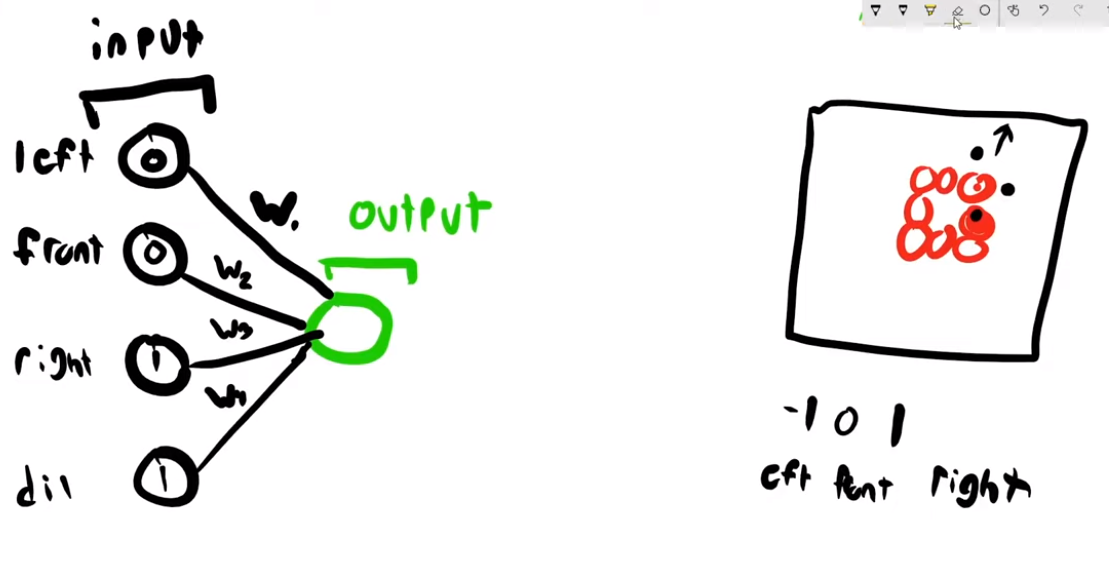 input
left 0
front 0
right 1
dir 1
W1
W2
W3
W4
output
-1 0 1
eft front right